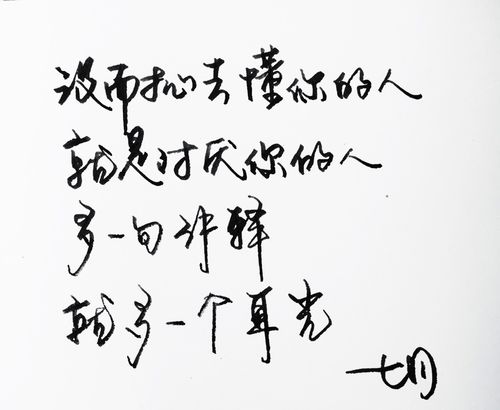 没耐心去懂你的人
就是讨厌你的人
多一句解释
就多一个耳光
七月